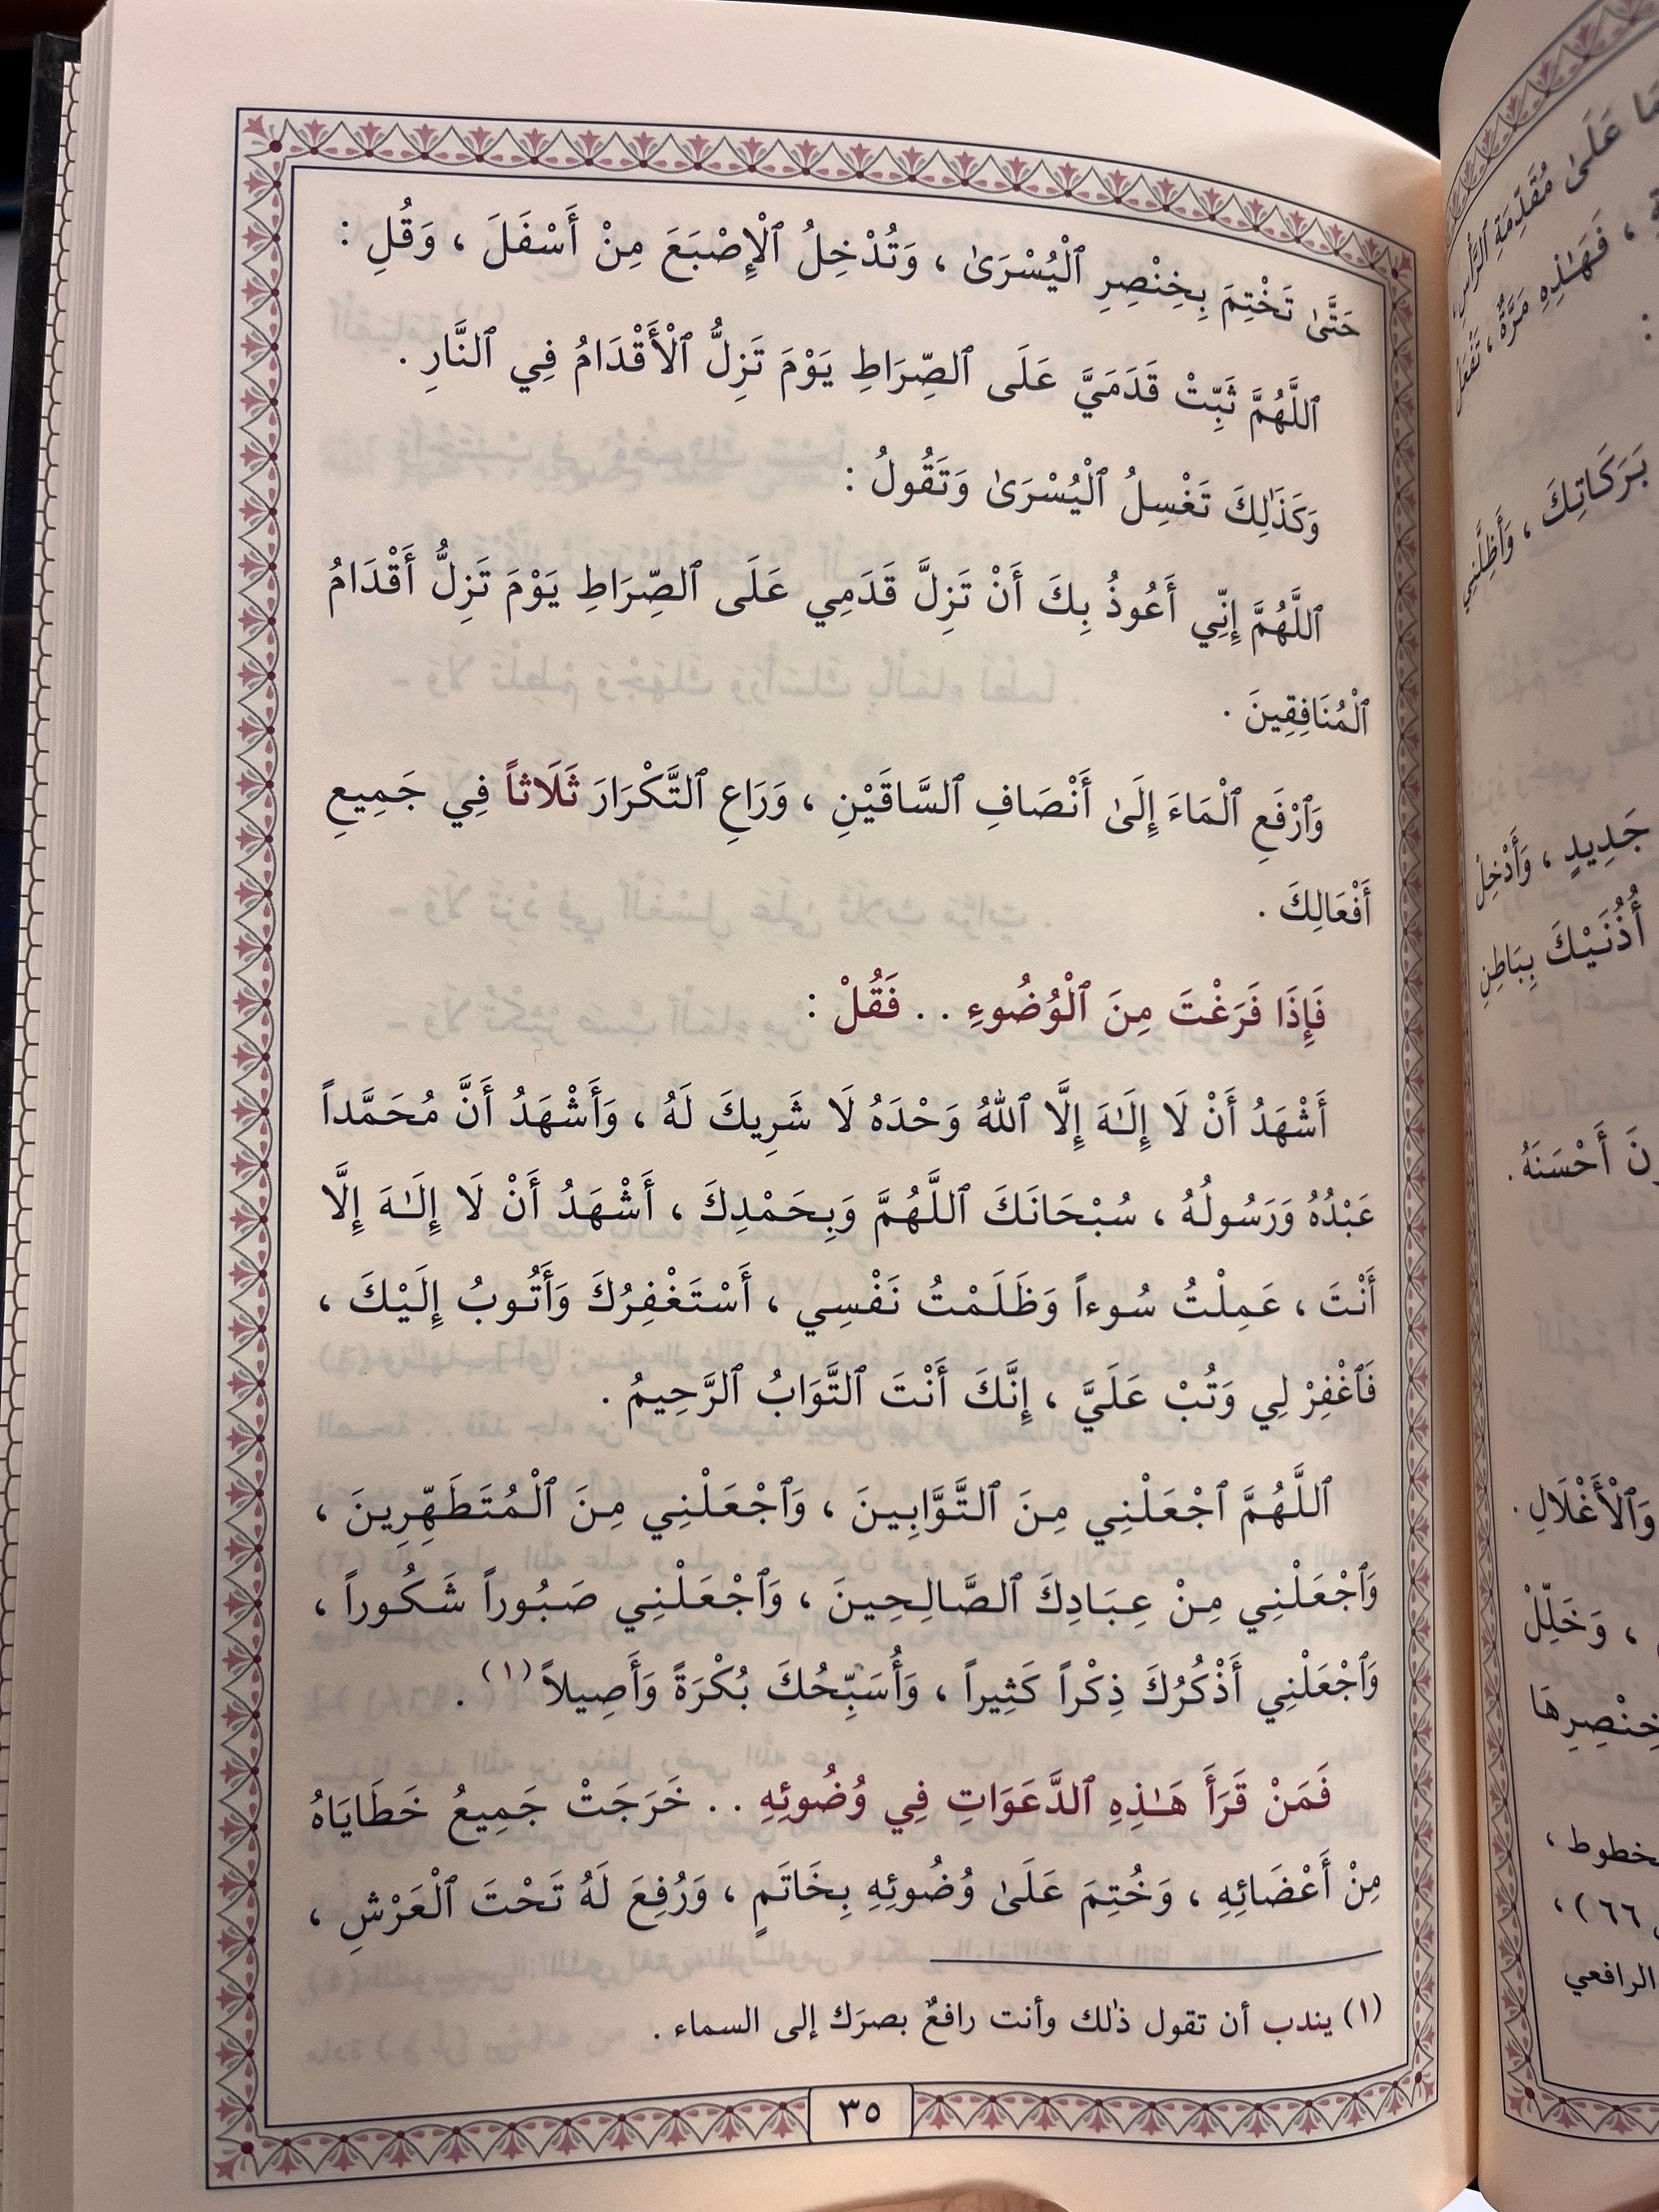 حَتَّىٰ تَخْتِمَ بِخِنْصِرِ ٱلْيُسْرَىٰ ، وَتُدْخِلُ ٱلْإِصْبَعَ مِنْ أَسْفَلَ ، وَقُلِ :
ٱللَّهُمَّ ثَبِّتْ قَدَمَيَّ عَلَى ٱلصِّرَاطِ يَوْمَ تَزِلُّ ٱلْأَقْدَامُ فِي ٱلنَّارِ .
وَكَذَٰلِكَ تَغْسِلُ ٱلْيُسْرَىٰ وَتَقُولُ :
ٱللَّهُمَّ إِنِّي أَعُوذُ بِكَ أَنْ تَزِلَّ قَدَمِي عَلَى ٱلصِّرَاطِ يَوْمَ تَزِلُّ أَقْدَامُ
ٱلْمُنَافِقِينَ .
وَٱرْفَعِ ٱلْمَاءَ إِلَىٰ أَنْصَافِ ٱلسَّاقَيْنِ ، وَرَاعِ ٱلتَّكْرَارَ ثَلَاثاً فِي جَمِيعِ
أَفْعَالِكَ .
فَإِذَا فَرَغْتَ مِنَ ٱلْوُضُوءِ . . فَقُلْ :
أَشْهَدُ أَنْ لَا إِلَـٰهَ إِلَّا ٱللهُ وَحْدَهُ لَا شَرِيكَ لَهُ ، وَأَشْهَدُ أَنَّ مُحَمَّداً
عَبْدُهُ وَرَسُولُهُ ، سُبْحَانَكَ ٱللَّهُمَّ وَبِحَمْدِكَ ، أَشْهَدُ أَنْ لَا إِلَـٰهَ إِلَّا
أَنْتَ ، عَمِلْتُ سُوءاً وَظَلَمْتُ نَفْسِي ، أَسْتَغْفِرُكَ وَأَتُوبُ إِلَيْكَ ،
فَٱغْفِرْ لِي وَتُبْ عَلَيَّ ، إِنَّكَ أَنْتَ ٱلتَّوَابُ ٱلرَّحِيمُ .
ٱللَّهُمَّ ٱجْعَلْنِي مِنَ ٱلتَّوَّابِينَ ، وَٱجْعَلْنِي مِنَ ٱلْمُتَطَهِّرِينَ ،
وَٱجْعَلْنِي مِنْ عِبَادِكَ ٱلصَّالِحِينَ ، وَٱجْعَلْنِي صَبُوراً شَكُوراً ،
وَٱجْعَلْنِي أَذْكُرُكَ ذِكْراً كَثِيراً ، وَأُسَبِّحُكَ بُكْرَةً وَأَصِيلاً (١) .
فَمَنْ قَرَأَ هَـٰذِهِ ٱلدَّعَوَاتِ فِي وُضُوئِهِ . . خَرَجَتْ جَمِيعُ خَطَايَاهُ
مِنْ أَعْضَائِهِ ، وَخُتِمَ عَلَىٰ وُضُوئِهِ بِخَاتَمٍ ، وَرُفِعَ لَهُ تَحْتَ ٱلْعَرْشِ ،
(١) يندب أن تقول ذٰلك وأنت رافعٌ بصرَك إلى السماء .
٣٥
عَلَىٰ مُقَدِّمَةِ ٱلرَّأْسِ ،
، فَهَـٰذِهِ مَرَّةٌ ،
:
بَرَكَاتِكَ ، وَأَظِلَّنِي
جَدِيدٍ ، وَأَدْخِلْ
أُذُنَيْكَ بِبَاطِنِ
أَحْسَنَهُ .
وَٱلْأَغْلَالِ .
، وَخَلِّلْ
٦٦ ) ،
الرافعي